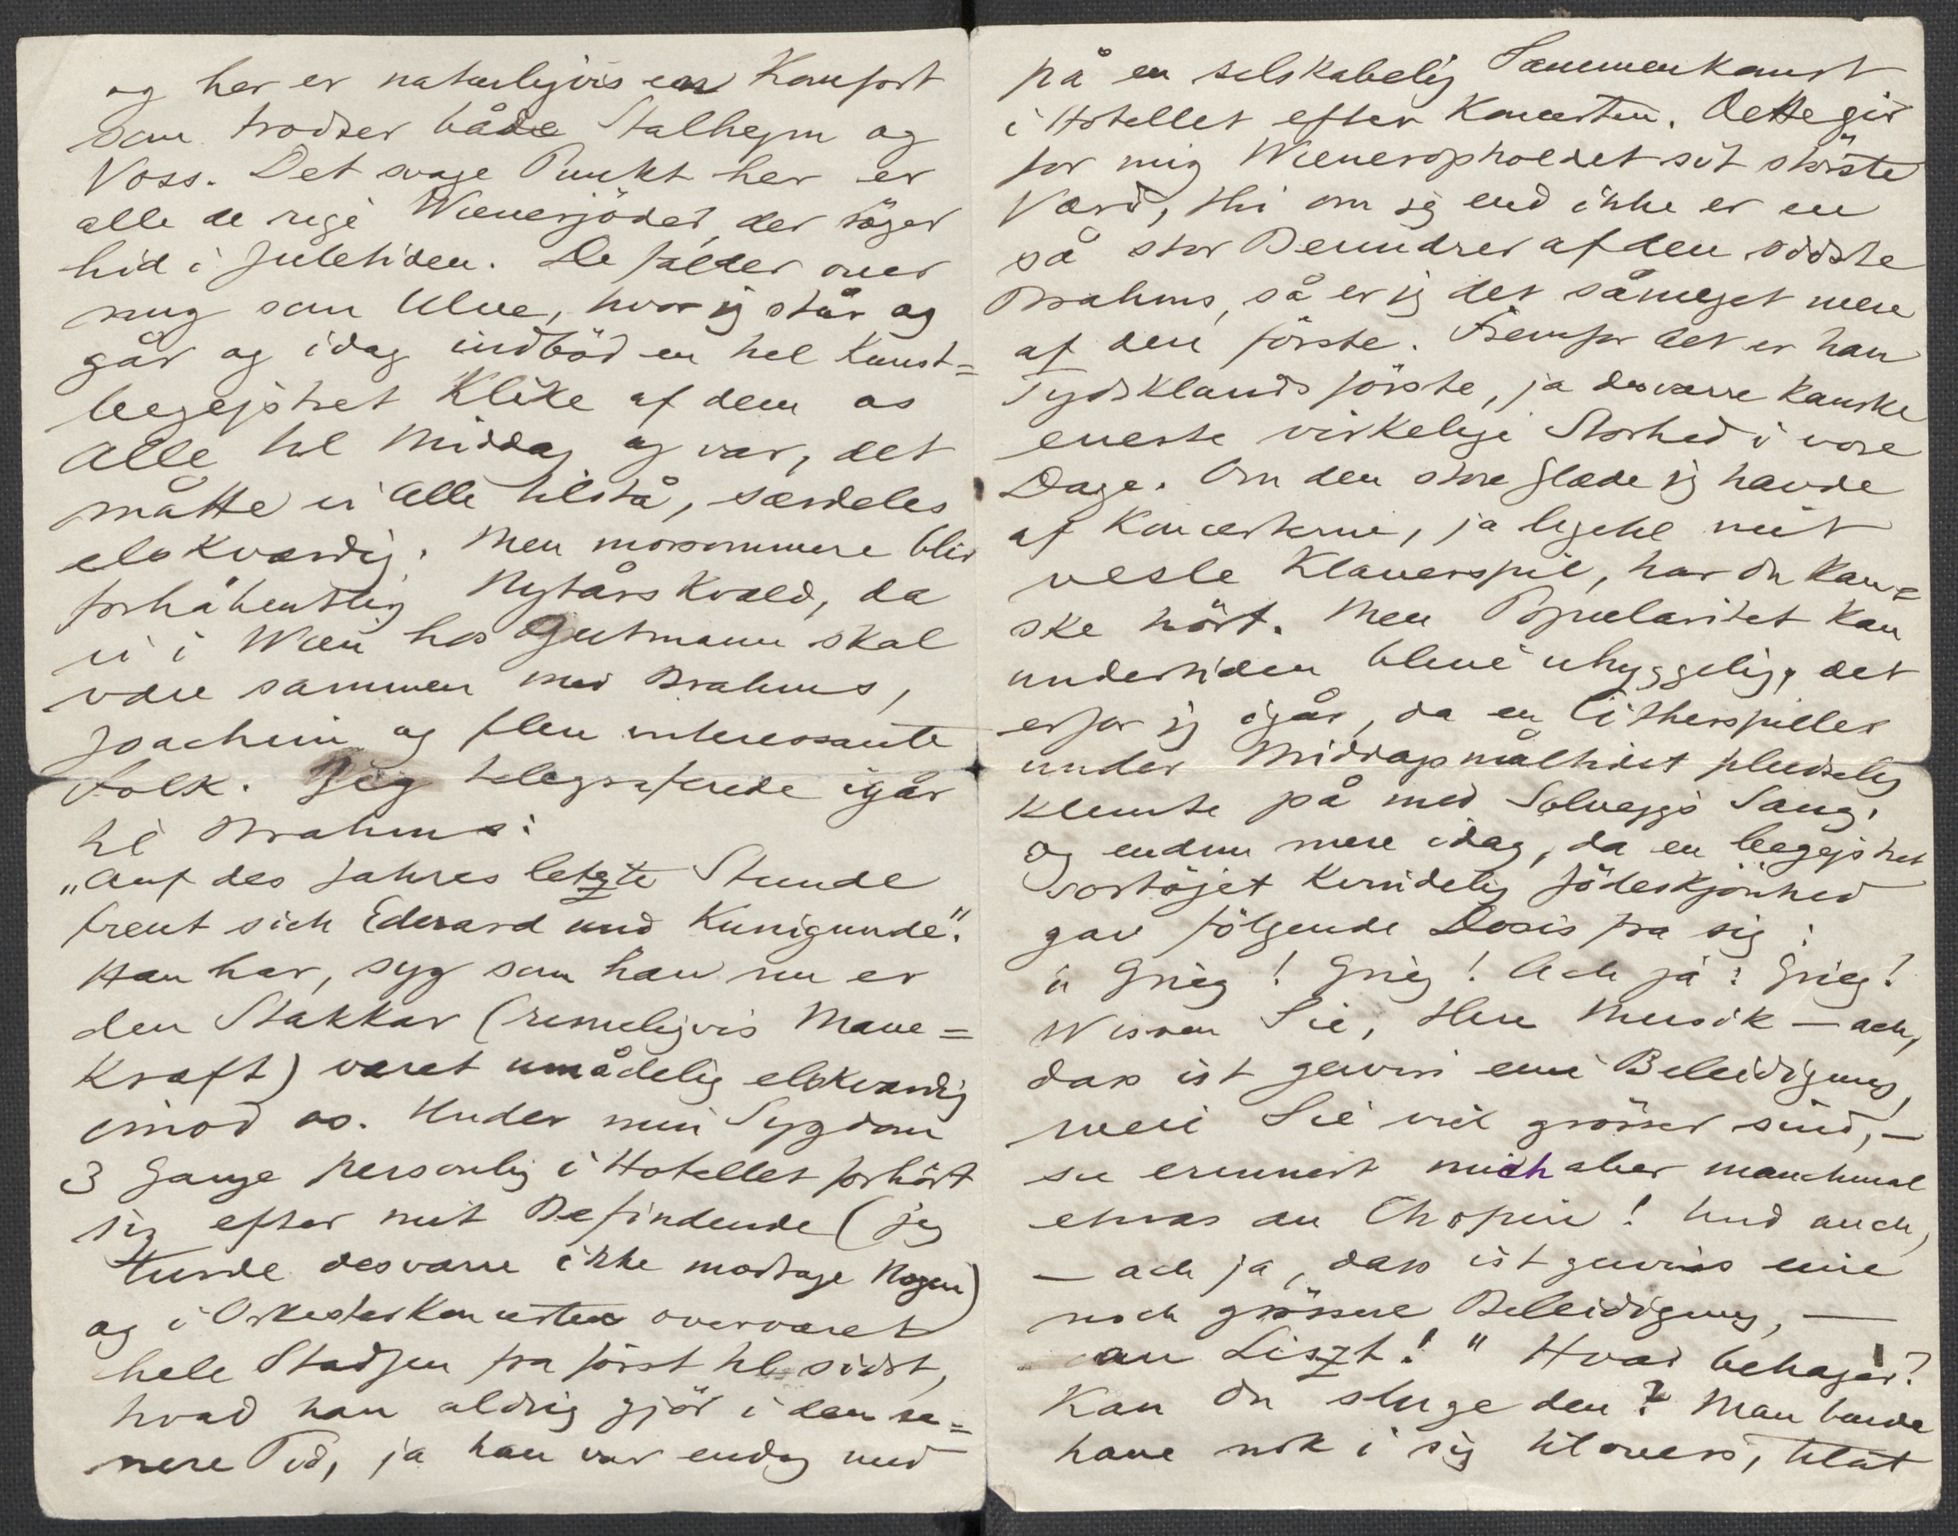 og her er naturligvis en Komfort
som trodser både Stalheim og
Voss. Det svage Punkt her er
alle de rige Wienerjöder, der söger
hid i Juletiden. De falder over
mig som Ulve, hvor jeg står og
går og idag indböd en hel kunst=
begejstret Klike af dem os
Alle til Middag og var, det
måtte vi Alle tilstå, særdeles
elskværdig. Men morsommere blir
forhåbentlig Nytårskvæld, da
vi i Wien hos Gutmann skal
være sammen med Brahms,
Joachim og flere interessante
Folk. Jeg telegraferede igår
til Brahms:
„Auf des Jahres letzte Stunde
freut sich Edvard und Kunigunde".
Han har, syg som han nu er
den Stakkar (rimeligvis Mave=
kræft) været umådelig elskværdig
imod os. Under min Sygdom
3 Gange personlig i Hotellet forhört
sig efter mit Befindende (jeg
turde desværre ikke modtage Nogen)
og i Orkesterkoncerten overværet
hele Stadsen fra först til sidst,
hvad han aldrig gjör i den se=
nere Tid, ja han var endog med
på en selskabelig Sammenkomst
i Hotellet efter Koncerten. Dette gir
for mig Wieneropholdet sit störste
Værd, thi om jeg end ikke er en
så stor Beundrer af den sidste
Brahms, så er jeg det såmeget mere
af den förste. Fremfor det er han
Tydsklands förste, ja desværre kanske
eneste virkelige Storhed i vore
Dage. Om den store Glæde jeg havde
af Koncerterne, ja ligetil mit
vesle Klaverspil, har du kan=
ske hört. Men Popularitet kan
undertiden blive uhyggelig, det
erfor jeg igår, da en Citherspiller
under Middagsmåltidet pludselig
klemte på med Solvejgs Sang.
Og endnu mere idag, da en begejstret
sortöjet kvindelig Jödeskjönhed
gav fölgende Dosis fra sig:
„Grieg! Grieg! Ach ja! Grieg!
Wissen Sie, Ihre Musik – ach,
dass ist gewiss eine Beleidigung,
weil Sie viel grösser sind, –
sie erinnert mich aber manchmal
etwas an Chopin! Und auch,
– ach ja, dass ist gewiss eine
noch grössere Beleidigung, –
an Liszt!" Hvad behager?
Kan du sluge den? Man burde
have nok i sig tilovers, tilat